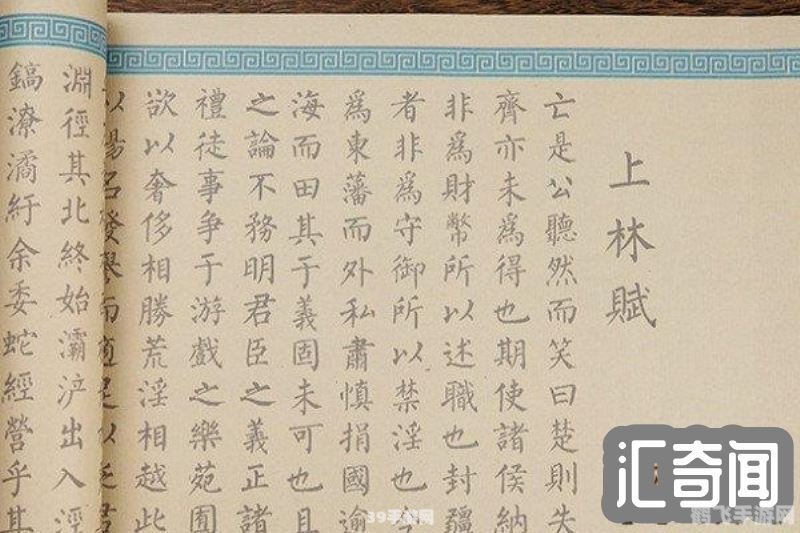 上林賦
亡是公聽然而笑曰楚則失
齊亦未爲得也期使諸侯納
非爲財幣所以述職也封疆
者非爲守御所以禁淫也今
爲東藩而外私肅慎捐國逾
海而田其于義固未可也且
之論不務明君臣之義正諸
禮徒事争于游戲之樂苑囿
欲以奢侈相勝荒淫相越此
以揚名發譽而適足以
淵徑其北終始灞浐出入涇
鎬潦潏紆余委蛇經營乎其
汇奇闻
39手游网
鹤飞手游网